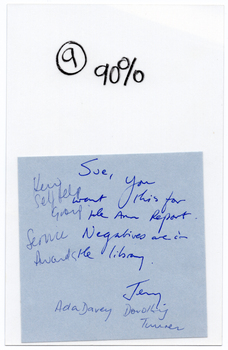 9 90%
Sue, you
want this for
the Ann Report.
Negatives are in
the library.
Jerry
Kerry
Self Help
Group
Service
Awards
Ada Davey Dorothy
Turner